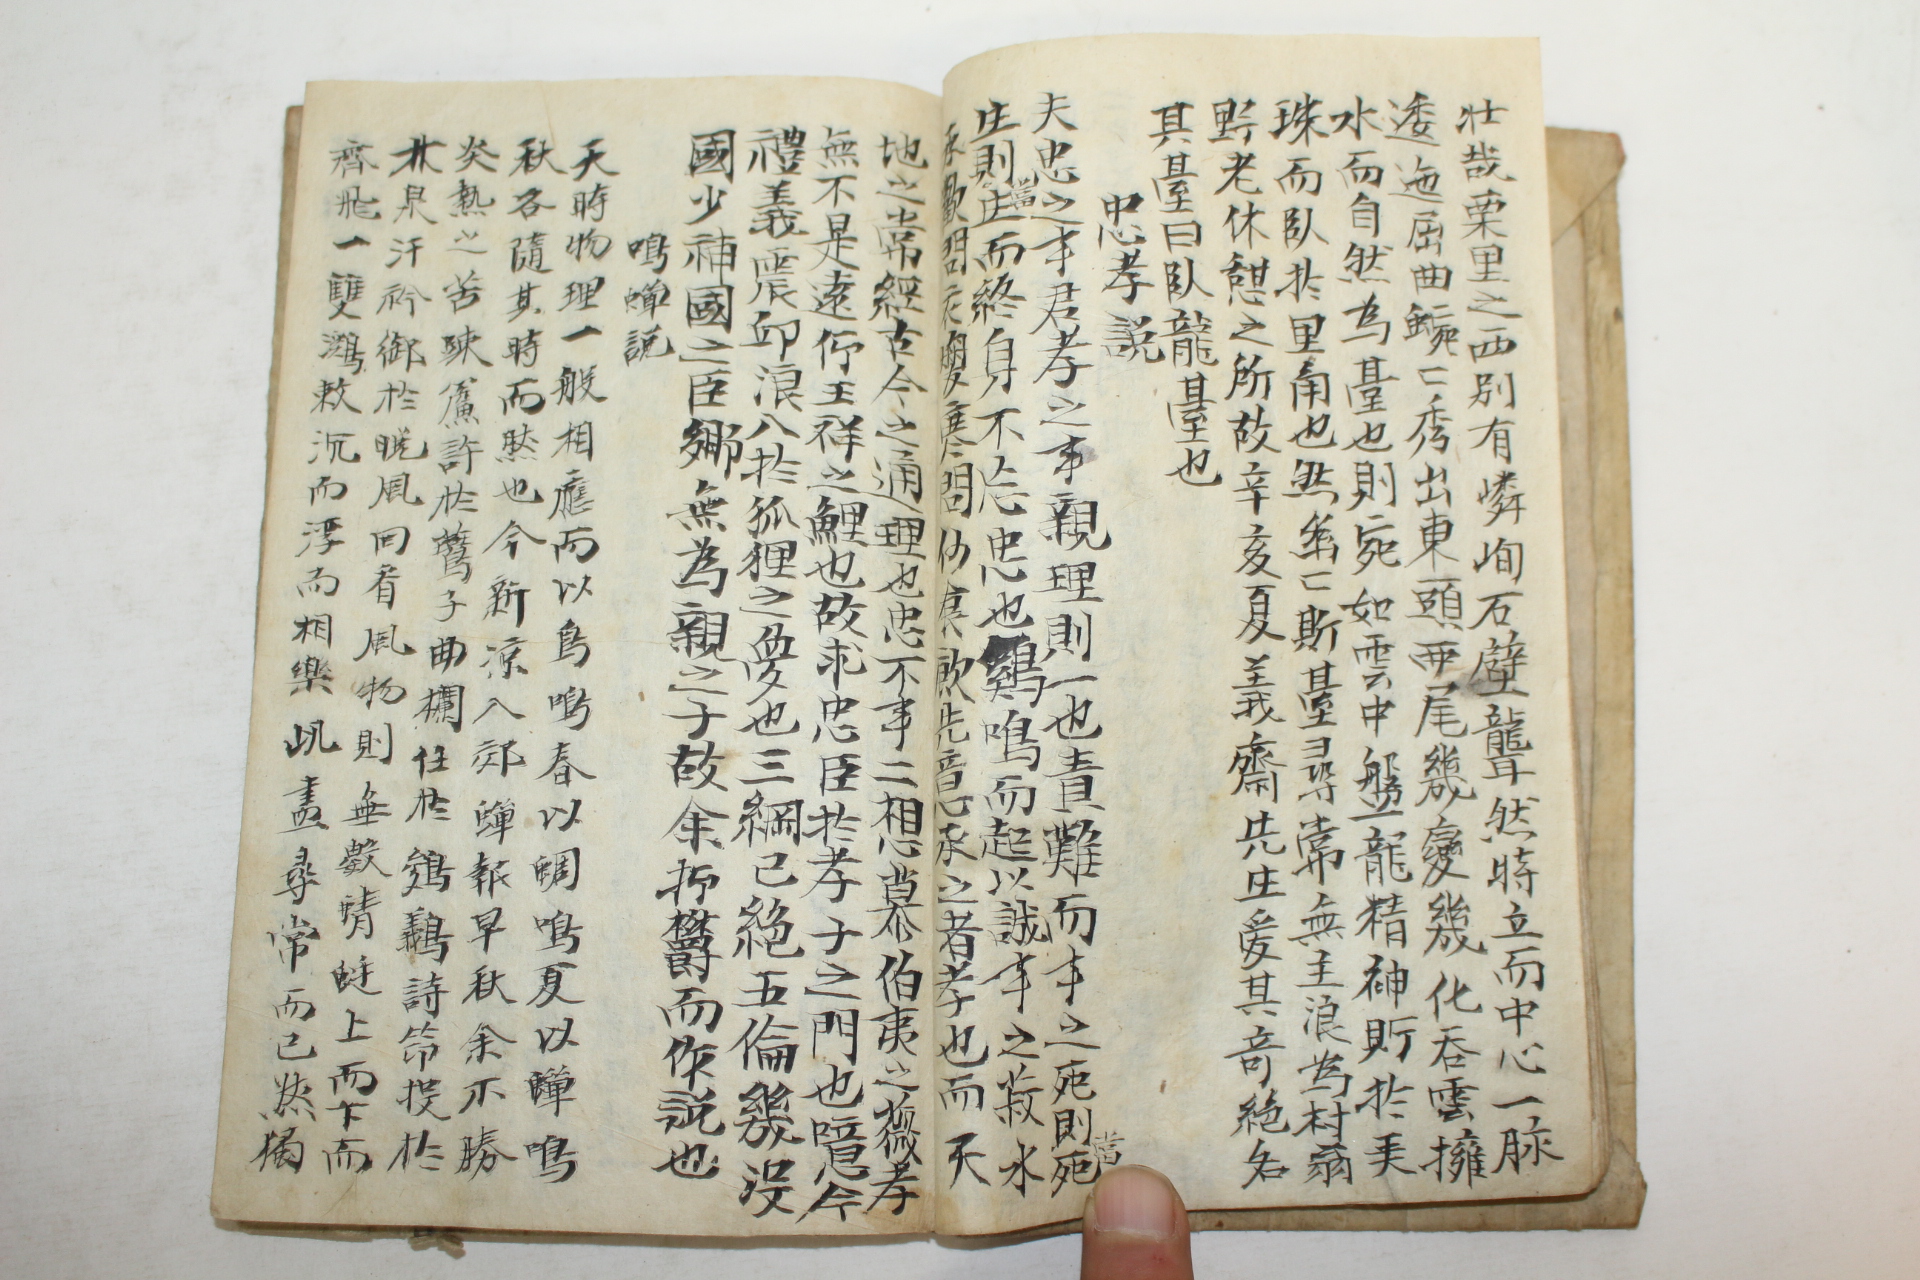 壮哉栗里之西別有嶙峋石壁聾然時立而中心一脉
逶迤屈曲蜿〻秀出東頭西尾幾變幾化呑雲擁
水而自然為䑓也則宛如雲中盤龍精神貯於美
珠而臥於里甬也然斯䑓尋常無主浪為村翁
野老休憩之所故辛亥夏義齋先庄爰其奇絶名
其䑓曰臥龍䑓也
忠孝説
夫忠之事君孝之事親理則一也責難而事之死則當死
庄則當庄而終身不忘忠也鷄鳴而起以誠事之菽水
承歡問衣燠寒問飲先意承之者孝也而天
地之常經古今之通理也忠不事二相思慕伯夷之薇孝
無不是遠行王祥之鯉也故求忠臣於孝子之門也噫今
禮義震邱浪入於狐狸之変也三綱已絶五倫幾沒
國少神國之臣鄉無為親之子故余抑欝而作説也
鳴蟬説
天時物理一般相應而以鳥鳴春以蜩鳴夏以蟬鳴
秋各隨其時而然也今新凉入郊蟬報早秋余不勝
炎熱之苦疎簾許於鷰子曲欄任於鷄鵝詩筇投於
林泉汗衿御於晩風回看風物則無數蜻蜓上而下而
齊飛一雙鴻敕沉而浮而相樂此盡尋常而已然獨